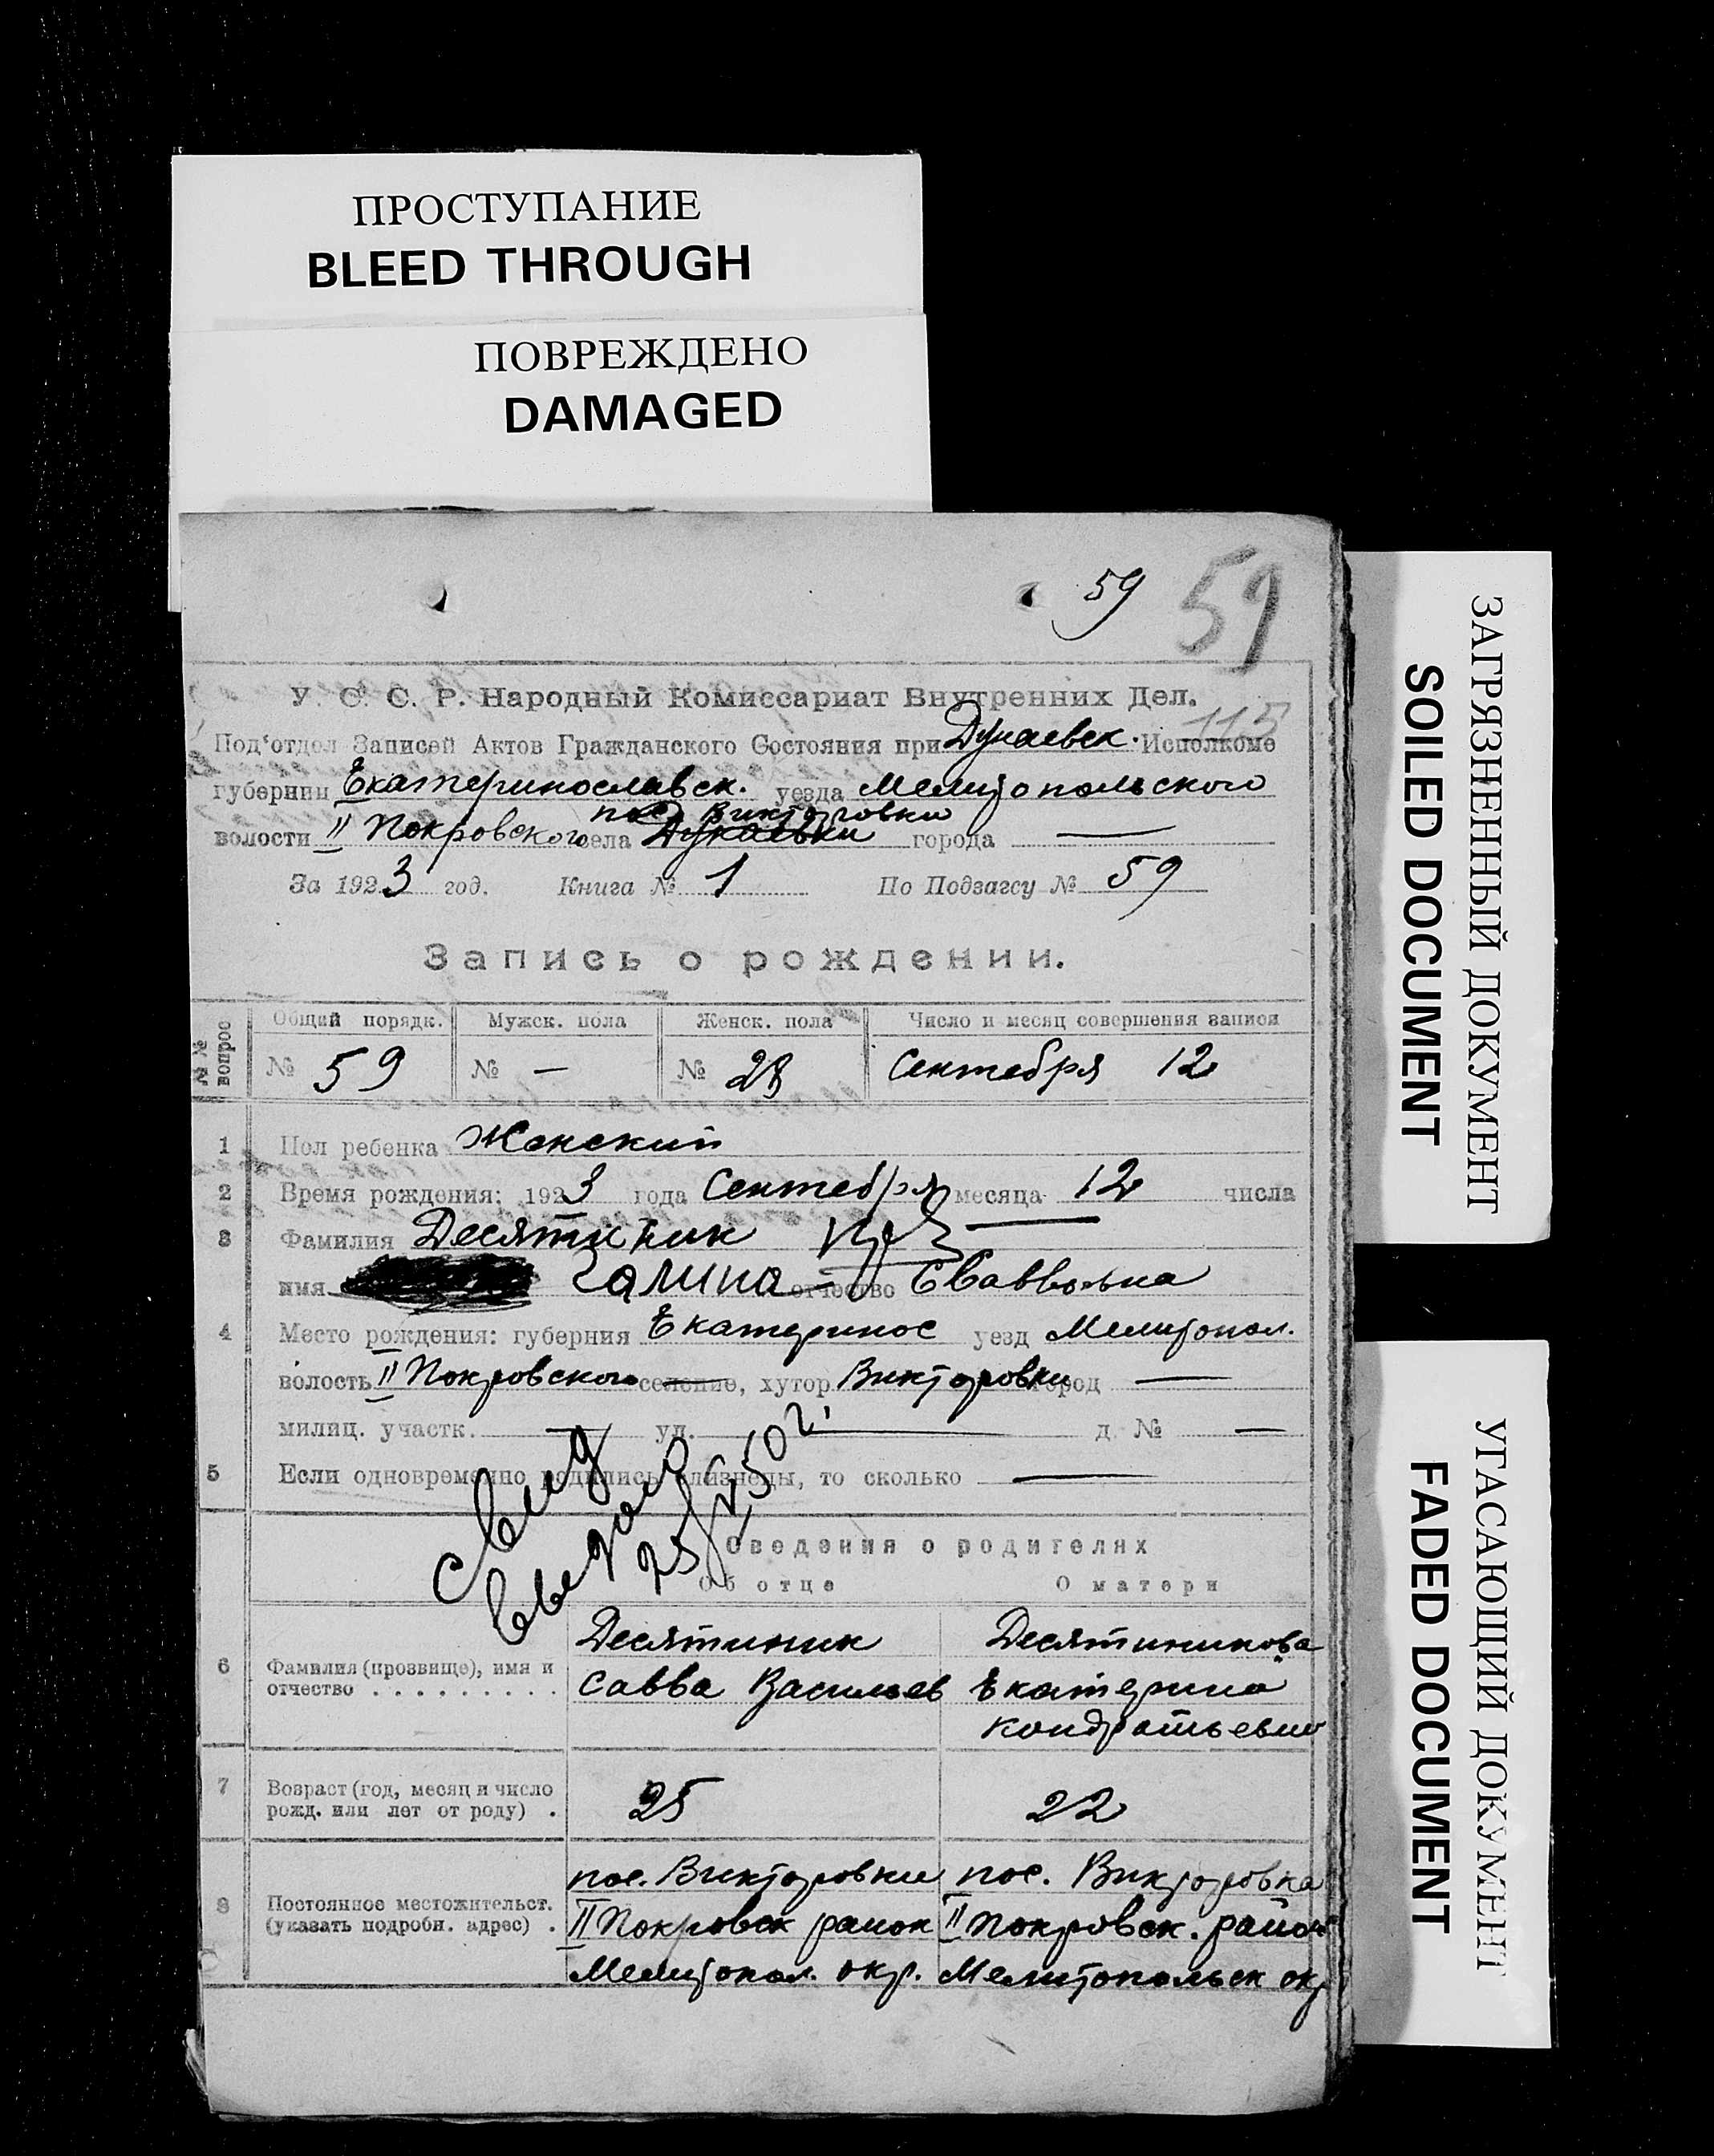 ПРОСТУПАНИЕ
BLEED THROUGH
ПОВРЕЖДЕНО
DAMAGED
59 59
У. С. С. Р. Народный Комиссариат Внутренних Дел.
115
Под'отдел Записей Актов Гражданского Состояния при Дунаевск. Исполкоме
губернии Екатеринославск. уезда Мелитопольского
пос Викторовки
волости II Покровского села Дунаевки города —
За 1923 год. Книга № 1 По Подзагсу № 59
Запись о рождении.
№№ вопрос
Общий порядк. Мужск. пола Женск. пола Число и месяц совершения записи
№ 59 № — № 28 Сентября 12
1 Пол ребенка Женский
2 Время рождения: 1923 года Сентября месяца 12 числа
3 Фамилия Десятиник
имя Галина отчество Савво
4 Место рождения: губерния Екатеринос уезд Мелитопол.
волость II Покровского селение, хутор Викторовки город —
милиц. участк. — ул. — д. № —
5 Если одновременно родились близнецы, то сколько —
Свид
25/V 50 г.
Сведения о родителях
Об отце О матери
Десятиник Десятиникова
6 Фамилия (прозвище), имя и
отчество . . . . . . . . . Савва Васильев Екатерина
Кондратьевна
7 Возраст (год, месяц и число
рожд. или лет от роду) . 25 22
пос. Викторовки пос. Викторовка
8 Постоянное местожительст.
(указать подробн. адрес) . II Покровск район II Покровск. район
Мелитопол. окр. Мелитопольск окр
ЗАГРЯЗНЕННЫЙ ДОКУМЕНТ
SOILED DOCUMENT
УГАСАЮЩИЙ ДОКУМЕНТ
FADED DOCUMENT